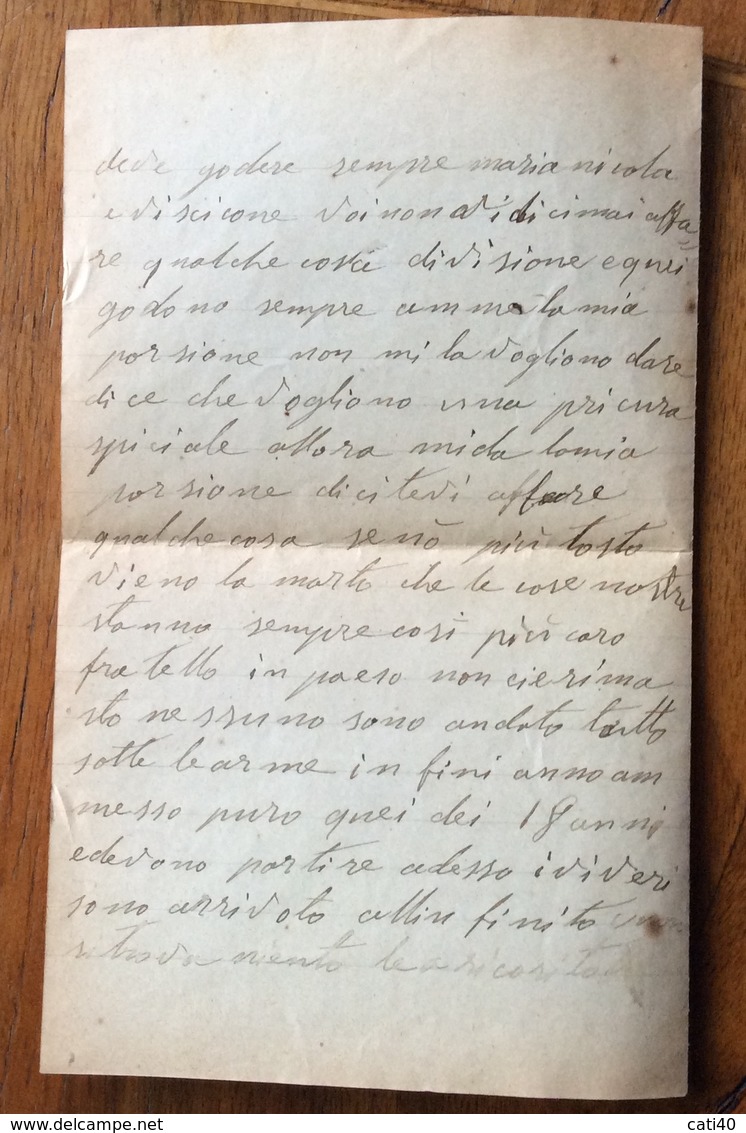 deve godere sempre maria nicola
e discicone voi non vi dicimai affa
re qualche cosa divisione equei
godono sempre amme la mia
porsione non mi la vogliono dare
dice che vogliono una pricura
spiciale allora mida lamia
porsione dicitevi affare
qualche cosa senò più tosto
vieno la marto che le cose nostre
stanno sempre così più caro
fratello in paeso non cierima
sto nessuno sono andato tutto
sotte learme in fini annoam
messo puro quei dei 18 anni
edevono partire adesso i viveri
sono arrivoto allin finito
si trova niento le
cati40